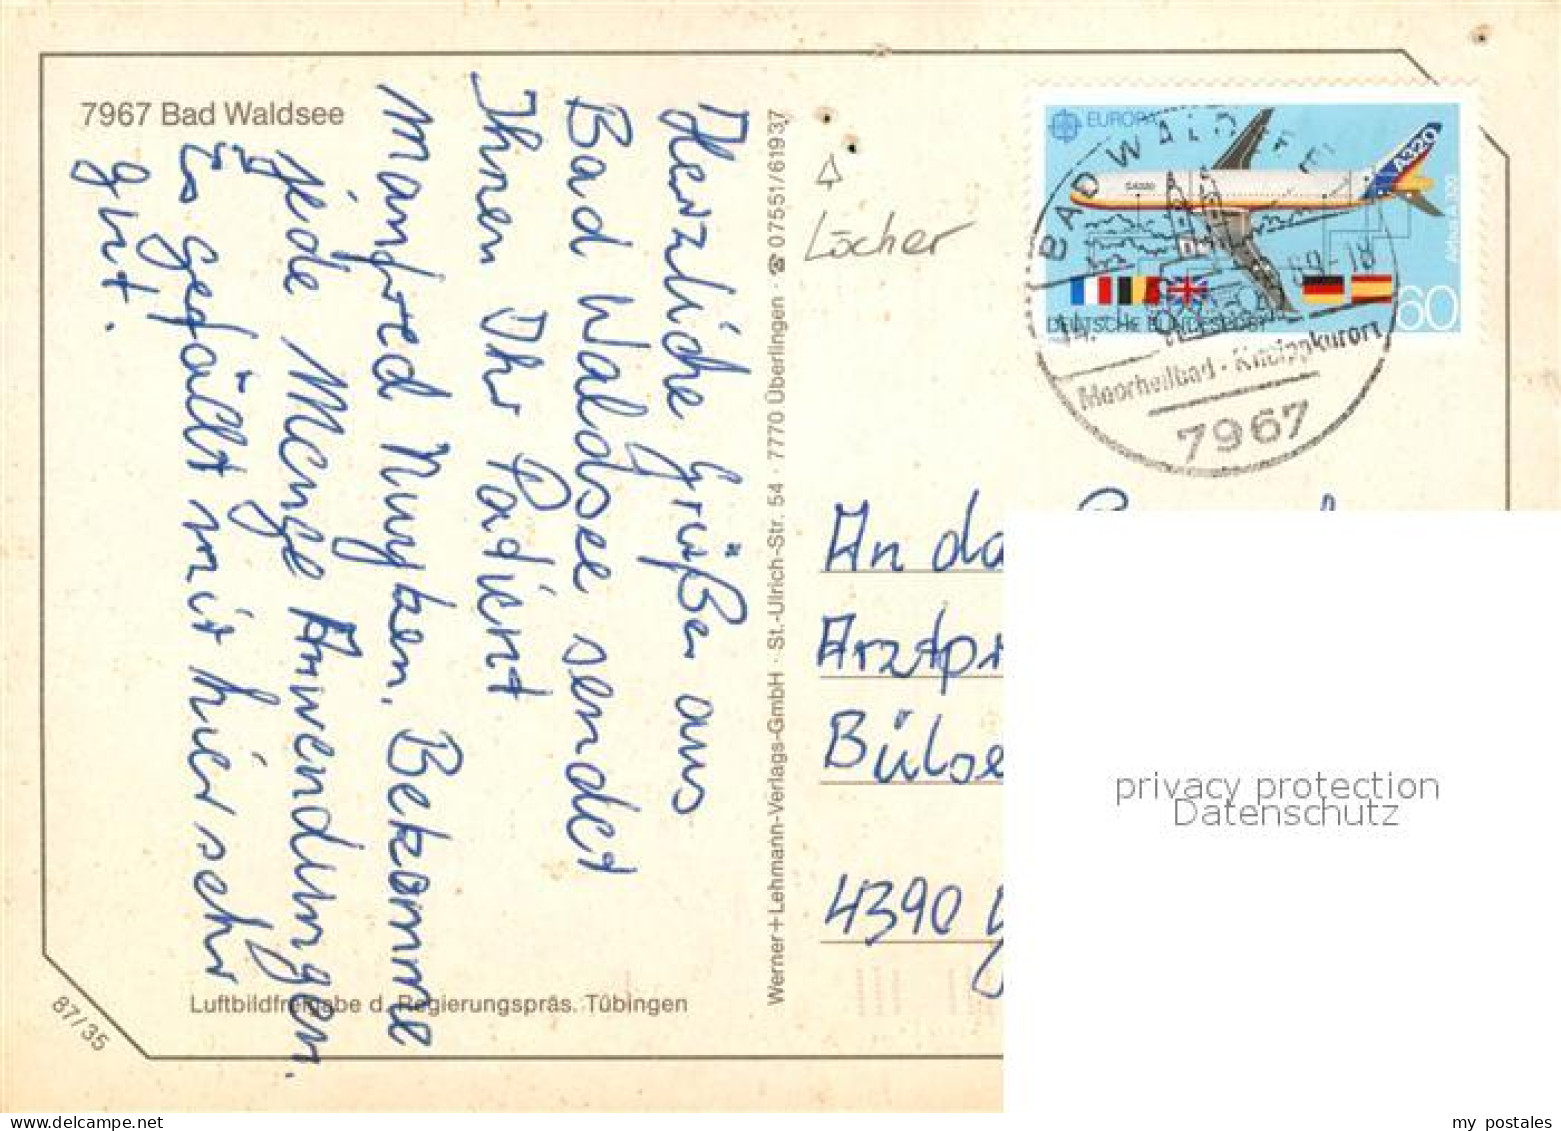 7967 Bad Waldsee
Herzliche Grüße aus
Bad Waldsee sendet
Ihnen Ihr Patient
Manfred Bekomme
jede Menge Anwendungen.
Es gefällt mir hier sehr
gut.
Luftbildfreigabe d. Regierungspräs. Tübingen
87/35
Werner+Lehmann-Verlags-GmbH · St.-Ulrich-Str. 54 · 7770 Überlingen · ☎ 07551/61937
Löcher
EUROPA
A320
Airbus A 320
DEUTSCHE BUNDESPOST
60
BAD WALDSEE
Moorheilbad - Kneippkurort
7967
An da
Arztpr
Bülse
4390
privacy protection
Datenschutz
my postales